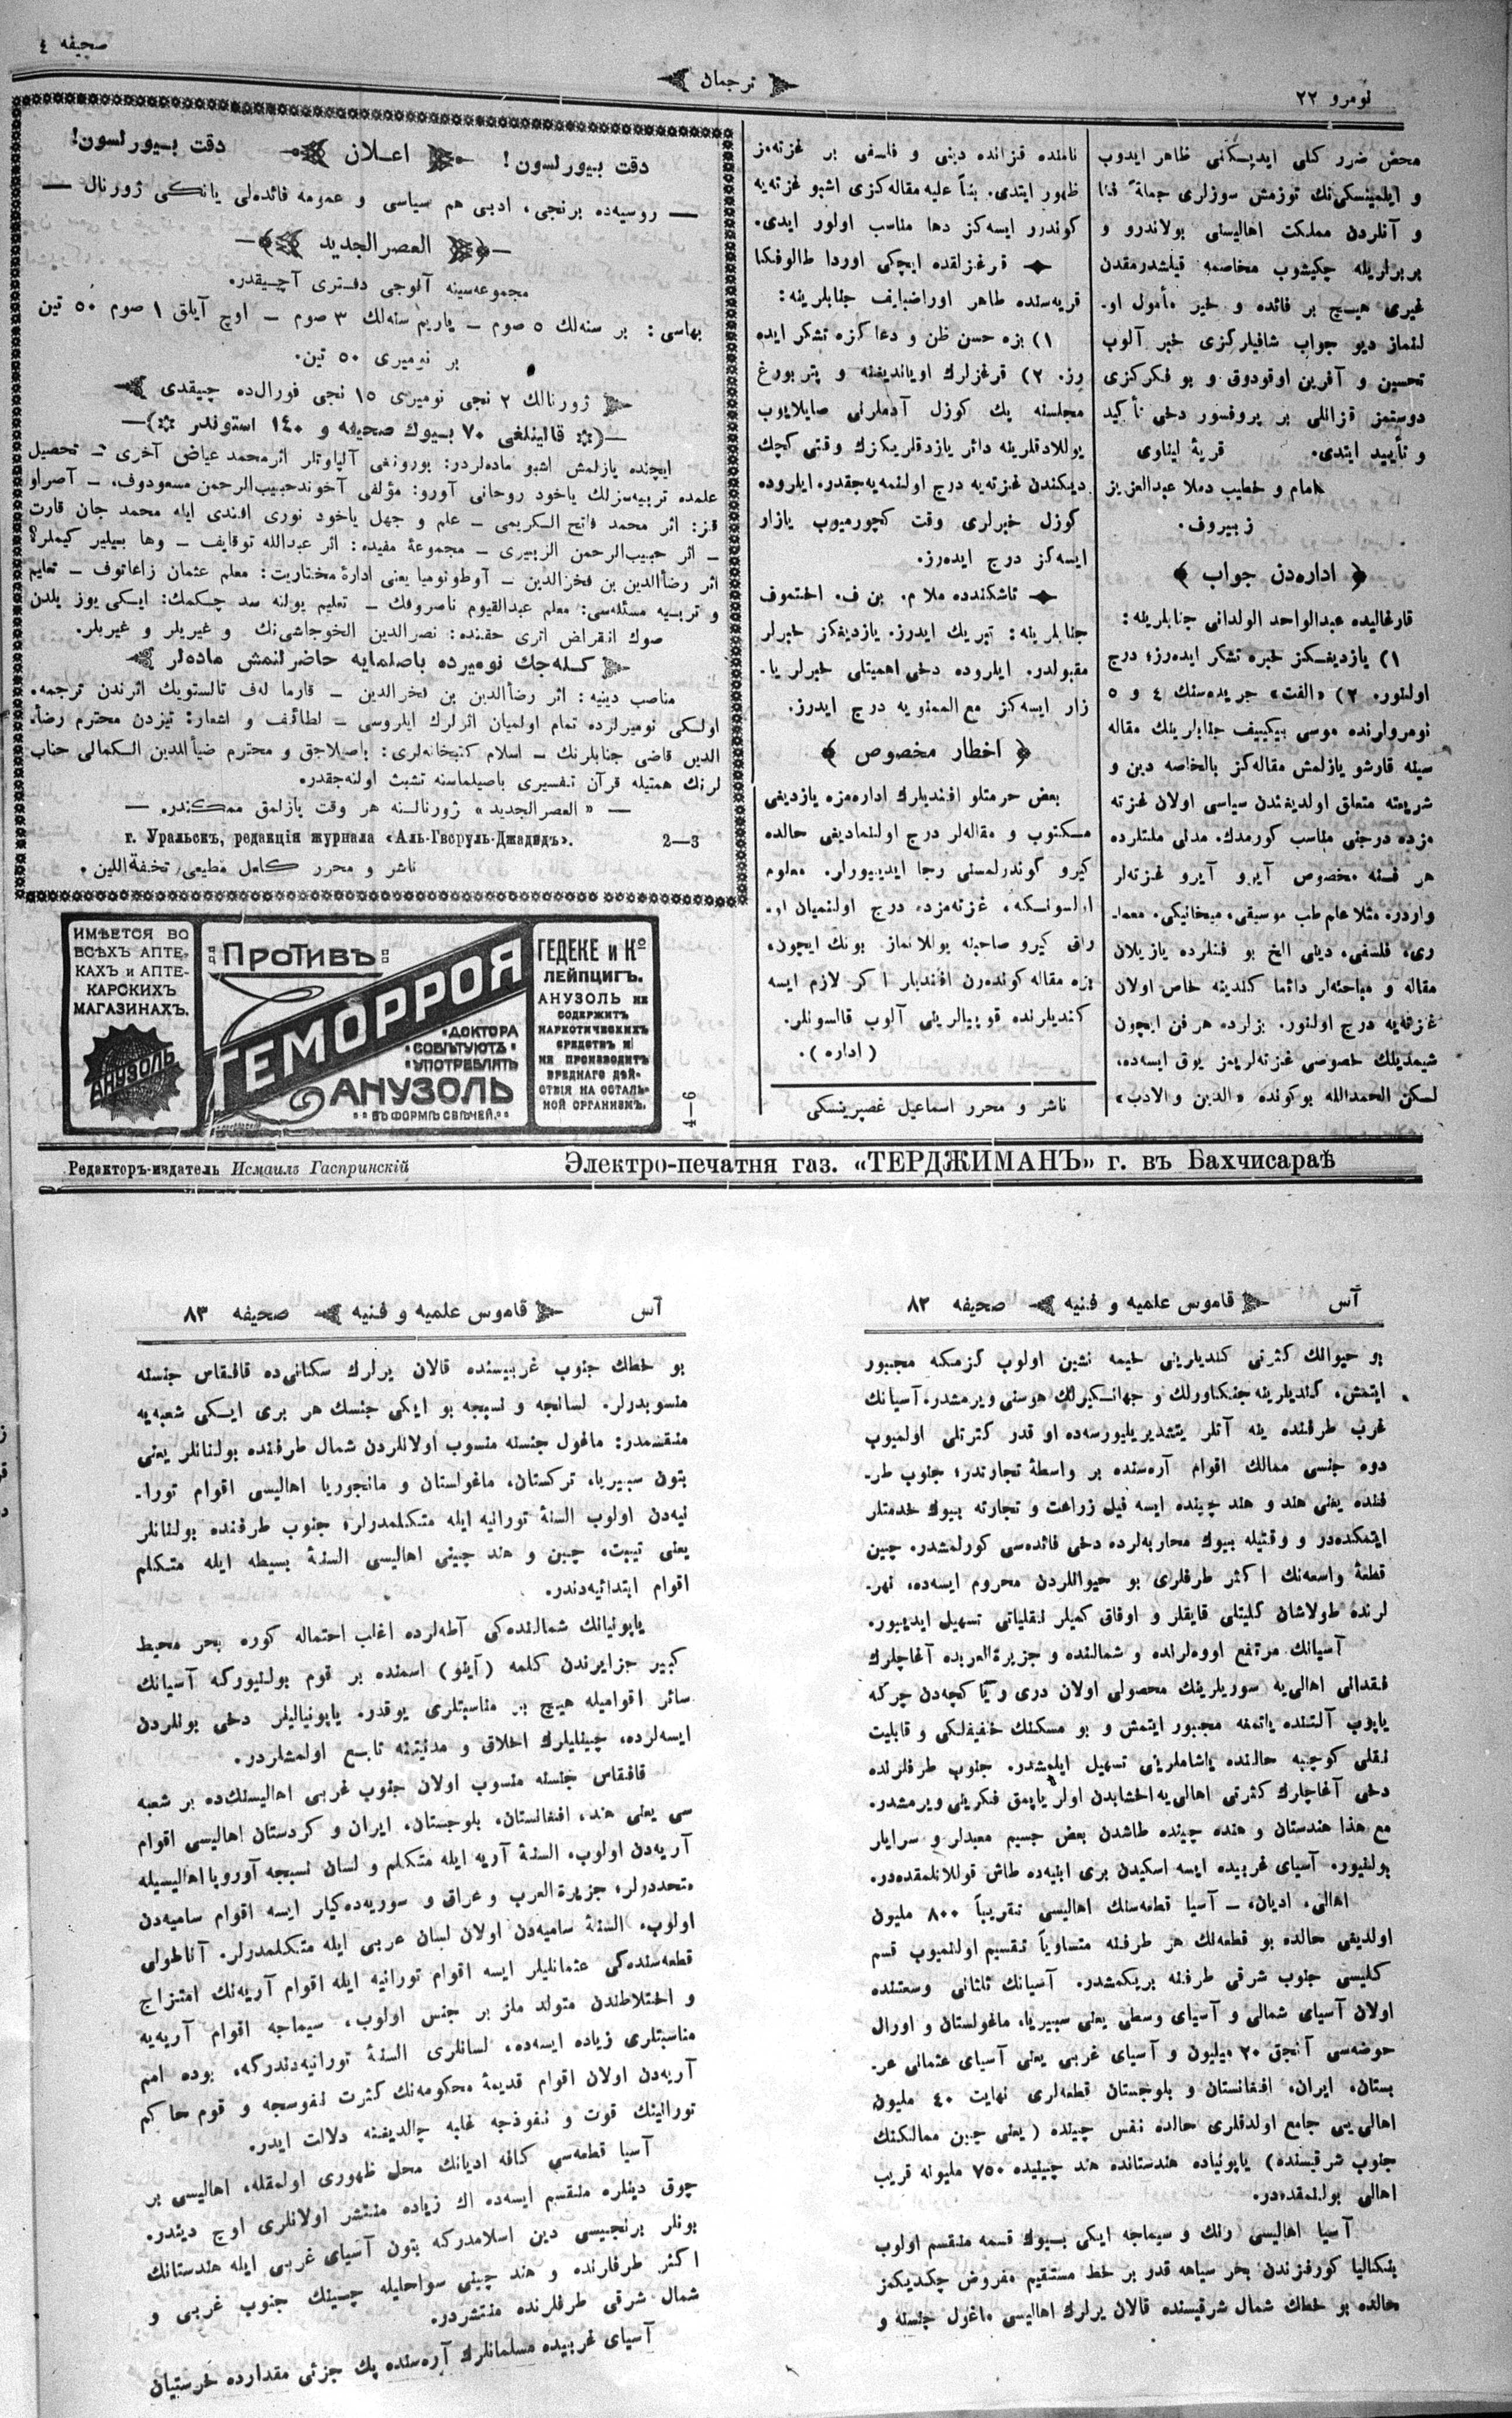 نومرو ٢٢
ترجمان
صحیفه ٤
محض ضرر کلی ایدیکنی ظاهر ایدوب
و ایلمینسکی‌نك توزمش سوزلری جملةً فنا
و آنلردن مملکت اهالیسنی بولاندرو و
بربرلریله چکیشوب مخاصمه قیلشدرمقدن
غیری هیچ بر فائده و خیر مأمول او-
لنماز دیو جواب شافیلرکزی خبر آلوب
تحسین و آفرین اوقودوق و بو فکرکزی
دوستمز قزانلی بر پروفسور دخی تأکید
و تأیید ایتدی. قریهٔ ایناوی
امام و خطیب دملا عبدالعزیز
زبیروف.
﴿ اداره‌دن جواب ﴾
قارغالیده عبدالواحد الولدانی جنابلرینه:
١) یازدیغکز خبره تشکر ایده‌رز؛ درج
اولنور. ٢) «الفت» جریده‌سنك ٤ و ٥
نومرولرنده موسی بیکییف جنابلرینك مقاله
سینه قارشو یازلمش مقاله‌کز بالخاصه دین و
شریعته متعلق اولدیغندن سیاسی اولان غزته
مزده درجنی مناسب کورمدك. مدنی ملتلرده
هر فننه مخصوص آیرو آیرو غزته‌لر
واردر. مثلا علم طب موسیقی، میخانیکی، معما-
ری، فلسفی، دینی الخ بو فنلرده یازیلان
مقاله و مباحثه‌لر دائما کندینه خاص اولان
غزته‌یه درج اولنور. بزلرده هر فن ایچون
شیمدیلك خصوصی غزته‌لریمز یوق ایسه‌ده،
لکن الحمدالله بوکونده «الدین والادب»
نامنده قزانده دینی و فلسفی بر غزته‌مز
ظهور ایتدی. بنأ علیه مقاله‌کزی اشبو غزته‌یه
کوندرر ایسه‌کز دها مناسب اولور ایدی.
قرغزلقده ایچکی اوردا طالوفکا
قریه‌سنده طاهر اوراضبایف جنابلرینه:
١) بزه حسن ظن و دعا کزه تشکر ایده
رز. ٢) قرغزلرك اویاندیغنه و پتربورغ
مجلسنه یك کوزل آدملرنی صایلایوب
یوللادقلرینه دائر یازدقلریکزك وقتی کچك
دیکندن غزته‌یه درج اولنمه‌یه‌جقدر. ایلروده
کوزل خبرلری وقت کچورمیوب یازار
ایسه‌کز درج ایده‌رز.
تاشکندده ملا م. بن ف. اختموف
جنابلرینه: تبریك ایدرز. یازدیغکز خبرلر
مقبولدر. ایلروده دخی اهمیتلی خبرلر یا-
زار ایسه‌کز مع الممنویه درج ایدرز.
﴿ اخطار مخصوص ﴾
بعض حرمتلو افندیلرك اداره‌مزه یازدیغی
مکتوب و مقاله‌لر درج اولنمادیغی حالده
کیرو کوندرلمسنی رجا ایدییورلر. معلوم
اولسونکه، غزته‌مزده درج اولنمیان او-
راق کیرو صاحبنه یوللانماز. بونك ایچون،
بزه مقاله کوندەرن افندیلر اکر لازم ایسه
کندیلرنده قوپیالرینی آلوب قالسونلر.
(اداره).
ناشر و محرر اسماعیل غصپرینسکی
دقت بیورلسون! اعلان دقت بیورلسون!
— روسیه‌ده برنجی، ادبی هم سیاسی و عمومه فائده‌لی یانکی ژورنال —
—﴿ العصر الجدید ﴾—
مجموعه‌سینه آلوجی دفتری آچیقدر.
بهاسی: بر سنه‌لك ٥ صوم — یاریم سنه‌لك ٣ صوم — اوچ آیلق ١ صوم ٥٠ تین
بر نومیری ٥٠ تین.
ژورنالك ٢ نجی نومیری ١٥ نجی فورال‌ده چیقدی
—( قالینلغی ٧٠ بیوك صحیفه و ١٤٠ استوندر )—
ایچنده یازلمش اشبو ماده‌لردر: بورونغی آلپاوتلر اثرمحمد عیاض آخری — تحصیل
علمده تربیه‌سزلك یاخود روحانی آورو: مؤلفی آخوندحبیب‌الرحمن مسعودوف. — آصراو
قز: اثر محمد فاتح الکریمی — علم و جهل یاخود نوری افندی ایله محمد جان قارت
— اثر حبیب‌الرحمن الزبیری — مجموعهٔ مفیده: اثر عبدالله توقایف — وها بیلیر کیملر؟
اثر رضأالدین بن فخرالدین — آوطونومیا یعنی ادارهٔ مختاریت: معلم عثمان زاعاتوف — تعلیم
و تربیه مسئله‌سی: معلم عبدالقیوم ناصروفك — تعلیم یولنه سد چکمك: ایکی یوز یلدن
صوك انقراض اثری حقنده: نصرالدین الخوجاشی‌نك و غیریلر و غیریلر.
کله‌جك نومیرده باصلمایه حاضرلنمش ماده‌لر
مناصب دینیه: اثر رضأالدین بن فخرالدین — قارما لەف تالستویك اثرندن ترجمه.
اولکی نومیرلرده تمام اولمیان اثرلرك ایلروسی — لطائف و اشعار: تیزدن محترم رضأ
الدین قاضی جنابلرنك — اسلام کتبخانه‌لری: باصیلاجق و محترم ضیأالدین الکمالی جناب
لرنك همتیله قرآن تفسیری باصیلماسنه تشبث اولنه‌جقدر.
— «العصر الجدید» ژورنالنه هر وقت یازلمق ممکندر. —
г. Уральскъ, редакція журнала «Аль-Гасруль-Джадидъ». 2—3
ناشر و محرر کامل مطیعی تحفةاللین.
ИМѢЕТСЯ ВО
ВСѢХЪ АПТЕ-
КАХЪ и АПТЕ-
КАРСКИХЪ
МАГАЗИНАХЪ.
АНУЗОЛЬ
ПРОТИВЪ
ГЕМОРРОЯ
ДОКТОРА
СОВѢТУЮТЪ
УПОТРЕБЛЯТЬ
АНУЗОЛЬ
ВЪ ФОРМѢ СВѢЧЕЙ.
ГЕДЕКЕ и Ко
ЛЕЙПЦИГЪ.
АНУЗОЛЬ НЕ
СОДЕРЖИТЪ
НАРКОТИЧЕСКИХЪ
СРЕДСТВЪ И
НЕ ПРОИЗВОДИТЪ
ВРЕДНАГО ДѢЙ-
СТВІЯ НА ОСТАЛЬ-
НОЙ ОРГАНИЗМЪ.
4—6
Редакторъ-издатель Исмаилъ Гаспринскій
Электро-печатня газ. «ТЕРДЖИМАНЪ» г. въ Бахчисараѣ
آس قاموس علمیه و فنیه صحیفه ٨٢
بو حیوانك کثرتی کندیلرینی خیمه نشین اولوب کزمکنه مجبور
ایتمش، کندیلرینه جنکاورلك و جهانکیرلك هوسنی ویرمشدر. آسیانك
غرب طرفنده ینه آتلر یتشدیریلیورسه‌ده او قدر کثرتلی اولمیوب
دوه جنسی ممالك اقوام آره‌سنده بر واسطهٔ تجارتدر؛ جنوب طر-
فنده یعنی هند و هند چینده ایسه فیل زراعت و تجارته بیوك خدمتلر
ایتمکده‌در و وقتیله بیوك محاربه‌لرده دخی فائده‌سی کورلمشدر. چین
قطعهٔ واسعه‌نك اکثر طرفلری بو حیوانلردن محروم ایسه‌ده، نهر-
لرنده طولاشان کلیتلی قایقلر و اوفاق کمیلر نقلیاتی تسهیل ایدییور.
آسیانك مرتفع اووه‌لرنده و شمالنده و جزیرةالعربده آغاچلرك
فقدانی اهالی‌یه سوریلرینك محصولی اولان دری و یا کچه‌دن چرکه
یاپوب آلتنده یاتمغه مجبور ایتمش و بو مسکنك خفیفلکی و قابلیت
نقلی کوچبه حالنده یاشاملرینی تسهیل ایلمشدر. جنوب طرفلرنده
دخی آغاچلرك کثرتی اهالی‌یه اخشابدن اولر یاپمق فکرینی ویرمشدر.
مع هذا هندستان و هنده چینده طاشدن بعض جسیم معبدلر و سرایلر
بولنیور. آسیای غربیده ایسه اسکیدن بری ابنیه‌ده طاش قوللانلمقده‌در.
اهالی، ادیان. — آسیا قطعه‌سنك اهالیسی تقریباً ٨٠٠ ملیون
اولدیغی حالده بو قطعه‌نك هر طرفنه متساویاً تقسیم اولنمیوب قسم
کلیسی جنوب شرقی طرفنه بریکمشدر. آسیانك ثلثانی وسعتنده
اولان آسیای شمالی و آسیای وسطی یعنی سیبریا، ماغولستان و اورال
حوضه‌سی آنجق ٢٠ میلیون و آسیای غربی یعنی آسیای عثمانی عر-
بستان، ایران، افغانستان و بلوجستان قطعه‌لری نهایت ٤٠ ملیون
اهالی‌یی جامع اولدقلری حالده نفس چینده (یعنی چین ممالکنك
جنوب شرقیسنده) یاپونیاده هندستانده هند چینیده ٧٥٠ ملیونه قریب
اهالی بولنمقده‌در.
آسیا اهالیسی رنك و سیماجه ایکی بیوك قسمه منقسم اولوب
بنکالیا کورفزندن بحر سیاهه قدر بر خط مستقیم مفروض چکدیکمز
حالده بو خطك شمال شرقیسنده قالان یرلرك اهالیسی ماغول جنسنه و
آس قاموس علمیه و فنیه صحیفه ٨٣
بو خطك جنوب غربیسنده قالان یرلرك سکانی‌ده قافقاس جنسنه
منسوبدرلر. لسانجه و نسبجه بو ایکی جنسك هر بری ایکی شعبه‌یه
منقسمدر: ماغول جنسنه منسوب اولانلردن شمال طرفنده بولنانلر یعنی
بتون سیبریا، ترکستان، ماغولستان و مانجوریا اهالیسی اقوام تورا-
نیه‌دن اولوب السنهٔ تورانیه ایله متکلمدرلر؛ جنوب طرفنده بولنانلر
یعنی تیبت، چین و هند چینی اهالیسی السنهٔ بسیطه ایله متکلم
اقوام ابتدائیه‌دندر.
یاپونیانك شمالنده‌کی آطه‌لرده اغلب احتماله کوره بحر محیط
کبیر جزایرندن کلمه (آینو) اسمنده بر قوم بولنیورکه آسیانك
سائر اقوامیله هیچ بر مناسبتلری یوقدر. یاپونیالیلر دخی بونلردن
ایسه‌لرده، چینلیلرك اخلاق و مدنیتنه تابع اولمشلردر.
قافقاس جنسنه منسوب اولان جنوب غربی اهالیسنك‌ده بر شعبه
سی یعنی هند، افغانستان، بلوجستان، ایران و کردستان اهالیسی اقوام
آریه‌دن اولوب، السنهٔ آریه ایله متکلم و لسان نسبجه آوروپا اهالیسیله
متحددرلر؛ جزیرةالعرب و عراق و سوریه‌ده‌کیلر ایسه اقوام سامیه‌دن
اولوب، السنهٔ سامیه‌دن اولان لسان عربی ایله متکلمدرلر. آناطولی
قطعه‌سنده‌کی عثمانلیلر ایسه اقوام تورانیه ایله اقوام آریه‌نك امتزاج
و اختلاطندن متولد ملز بر جنس اولوب، سیماجه اقوام آریه‌یه
مناسبتلری زیاده ایسه‌ده، لسانلری السنهٔ تورانیه‌دندرکه، بوده امم
آریه‌دن اولان اقوام قدیمهٔ محکومه‌نك کثرت نفوسجه و قوم حاکم
تورانینك قوت و نفوذجه غلبه چالدیغنه دلالت ایدر.
آسیا قطعه‌سی کافه ادیانك محل ظهوری اولمقله، اهالیسی بر
چوق دینلره منقسم ایسه‌ده اك زیاده منتشر اولانلری اوچ دیندر.
بونلر برنجیسی دین اسلامدرکه بتون آسیای غربی ایله هندستانك
اکثر طرفلرنده و هند چینی سواحلیله چینك جنوب غربی و
شمال شرقی طرفلرنده منتشردر.
آسیای غربیده مسلمانلرك آره‌سنده پك جزئی مقدارده خرستیان